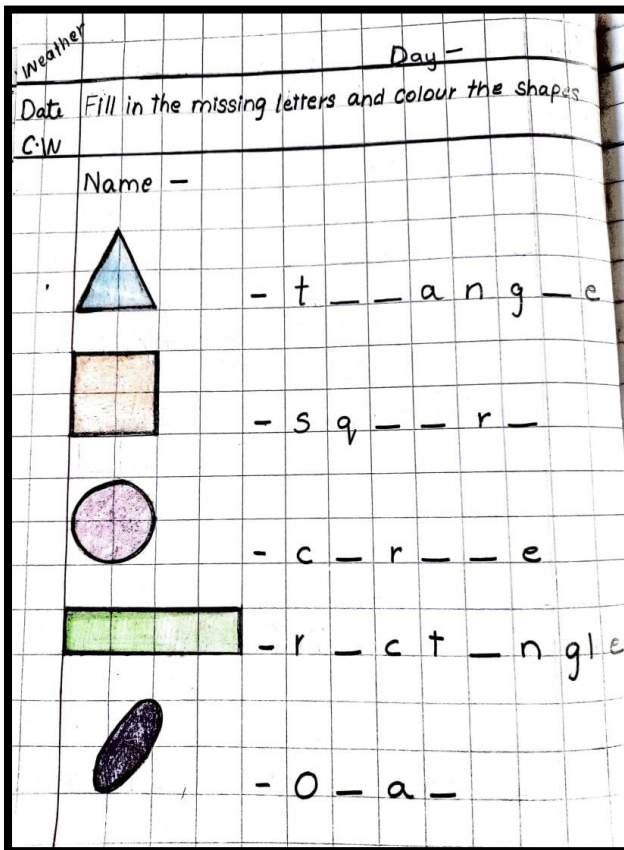 Weather
Day -
Date Fill in the missing letters and colour the shapes
C.W
Name -
- t _ _ a n g _ e
- s q _ _ r _
- c _ r _ _ e
- r _ c t _ n g l e
- O _ a _